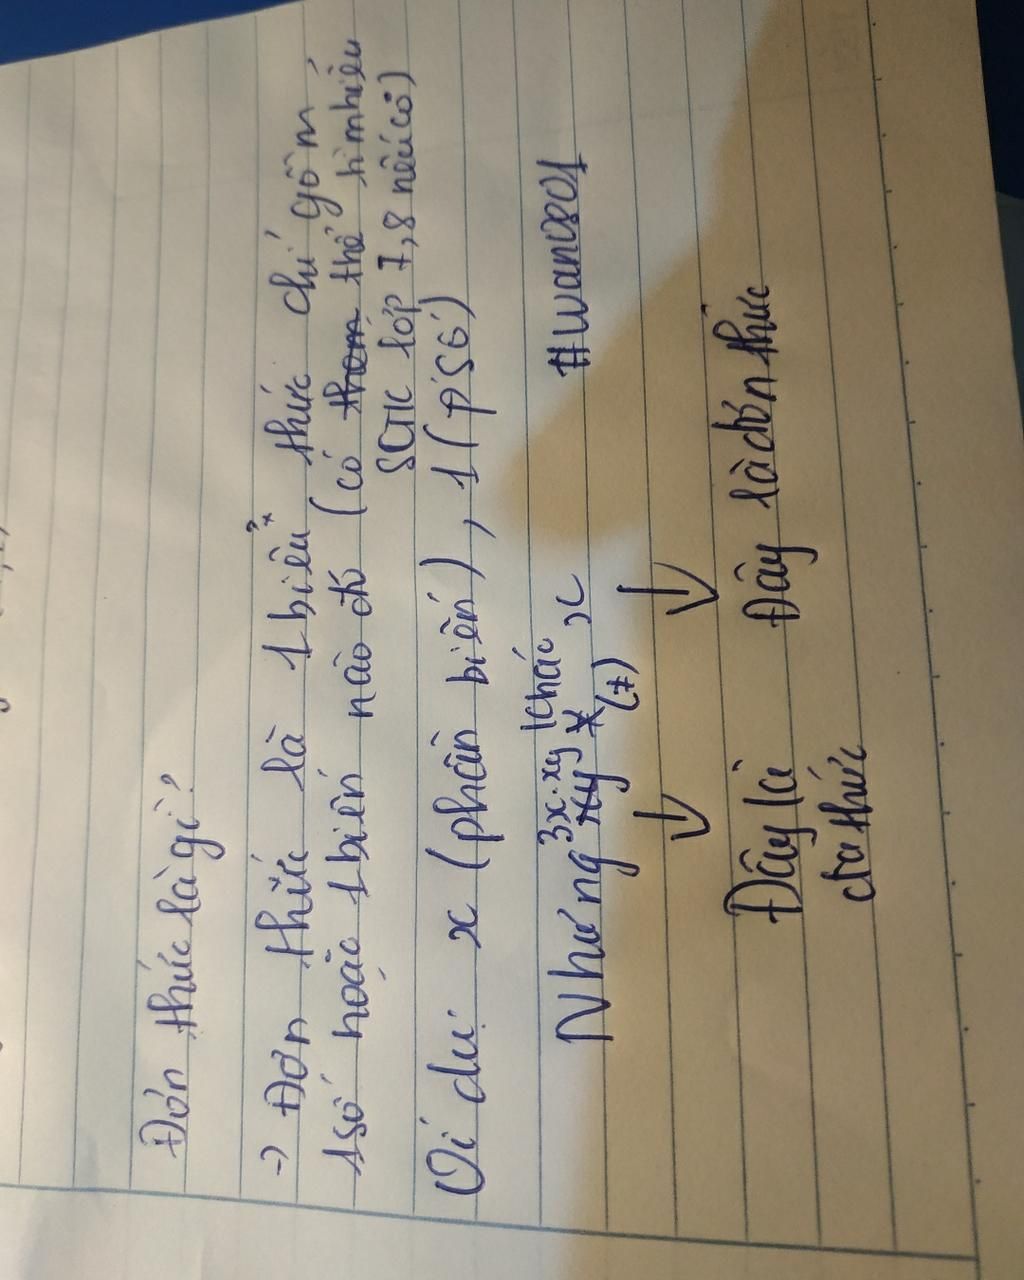 Đơn thức là gì?
-> Đơn thức là 1 biểu thức chỉ gồm
1 số hoặc 1 biến nào đó (có thể tìm hiểu
SGK lớp 7,8 nếu có)
Ví dụ: x (phần biến), 1 (p' số)
3x.xy khác
Nhưng x #wang801
(≠)
↓ ↓
Đây là Đây là đơn thức
đa thức